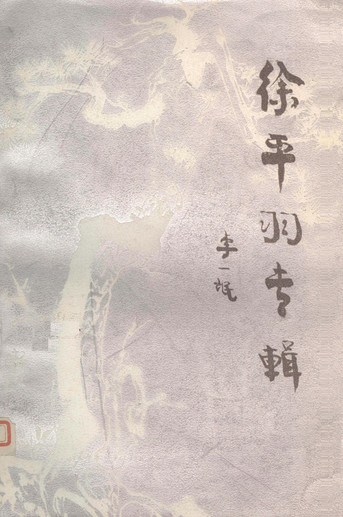 徐平羽专輯
李一氓